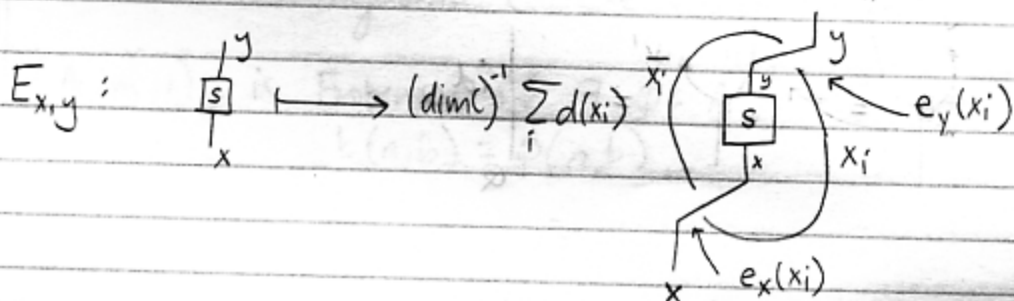 y y
E_{x,y} : s ⟼ (dim C)^{-1} \sum_i d(x_i) \overline{x_i} y s x x_i e_y(x_i)
x
x e_x(x_i)